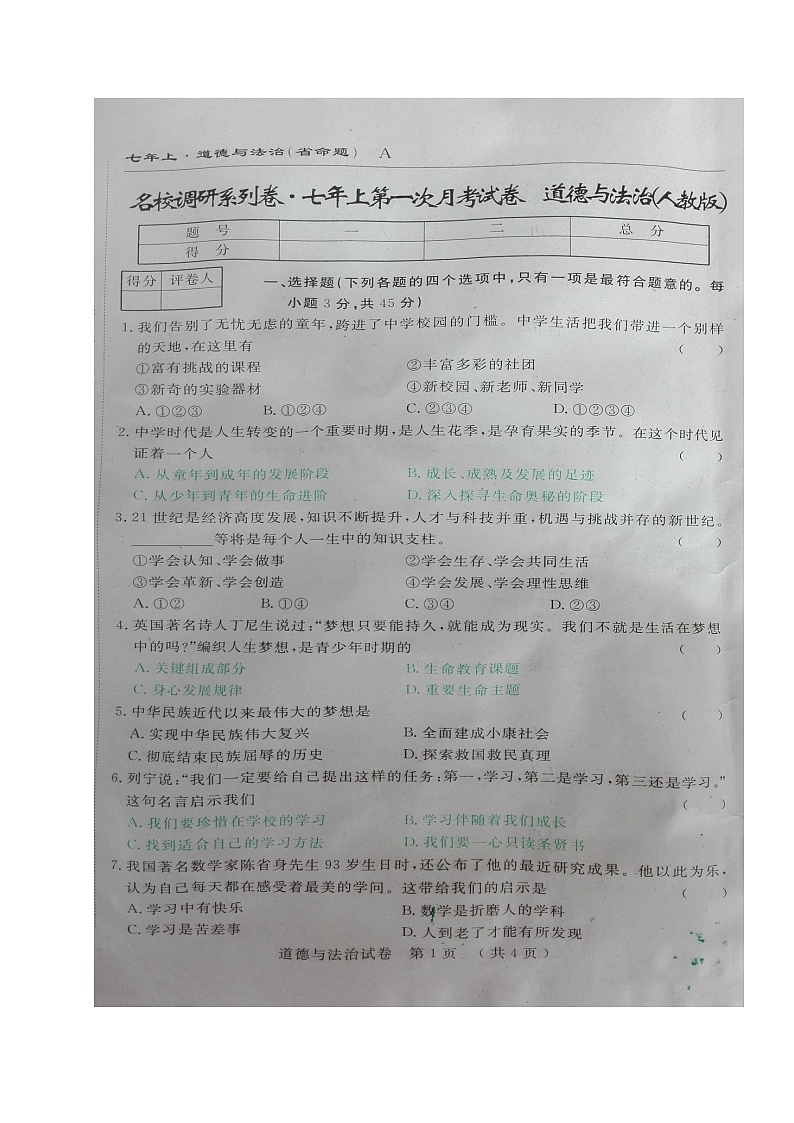 七年上·道德与法治(省命题) A
名校调研系列卷·七年上第一次月考试� 道德与法治(人教版)
题 号 一 二 总 分
得 分
得分 评卷人
一、选择题(下列各题的四个选项中,只有一项是最符合题意的。每
小题3分,共45分)
1.我们告别了无忧无虑的童年,跨进了中学校园的门槛。中学生活把我们带进一个别样
的天地,在这里有 ( )
①富有挑战的课程 ②丰富多彩的社团
③新奇的实验器材 ④新校园、新老师、新同学
A.①②③ B.①②④ C.②③④ D.①②③④
2.中学时代是人生转变的一个重要时期,是人生花季,是孕育果实的季节。在这个时代见
证着一个人 ( )
A.从童年到成年的发展阶段 B.成长、成熟及发展的足迹
C.从少年到青年的生命进阶 D.深入探寻生命奥秘的阶段
3.21世纪是经济高度发展,知识不断提升,人才与科技并重,机遇与挑战并存的新世纪。
________等将是每个人一生中的知识支柱。 ( )
①学会认知、学会做事 ②学会生存、学会共同生活
③学会革新、学会创造 ④学会发展、学会理性思维
A.①② B.①④ C.③④ D.②③
4.英国著名诗人丁尼生说过:“梦想只要能持久,就能成为现实。我们不就是生活在梦想
中的吗?”编织人生梦想,是青少年时期的 ( )
A.关键组成部分 B.生命教育课题
C.身心发展规律 D.重要生命主题
5.中华民族近代以来最伟大的梦想是 ( )
A.实现中华民族伟大复兴 B.全面建成小康社会
C.彻底结束民族屈辱的历史 D.探索救国救民真理
6.列宁说:“我们一定要给自己提出这样的任务:第一,学习,第二是学习,第三还是学习。”
这句名言启示我们 ( )
A.我们要珍惜在学校的学习 B.学习伴随着我们成长
C.找到适合自己的学习方法 D.我们要一心只读圣贤书
7.我国著名数学家陈省身先生93岁生日时,还公布了他的最近研究成果。他以此为乐,
认为自己每天都在感受着最美的学问。这带给我们的启示是 ( )
A.学习中有快乐 B.数学是折磨人的学科
C.学习是苦差事 D.人到老了才能有所发现
道德与法治试卷 第1页 (共4页)